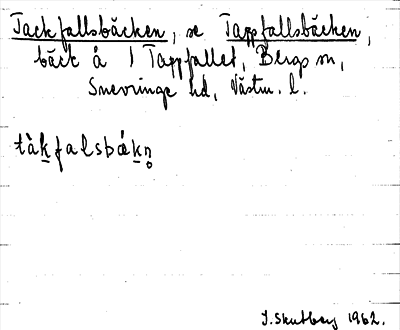 Tackfallsbäcken, se Tappfallsbäcken,
bäck å 1 Tappfallet, Bergs sn,
Snevringe hd, Västm. l.
tàkfalsbǽkn̥
J. Skutberg 1962.